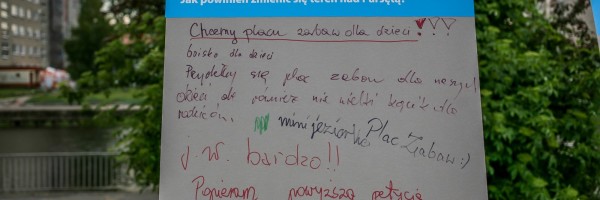 Jak powinien zmienić się teren nad Parsętą?
Chcemy placu zabaw dla dzieci!
boisko dla dzieci
Przydałby się plac zabaw dla naszych
dzieci ale również nie wielki kącik dla
rodziców.
mini jeziorko Plac Zabaw :)
J. W. bardzo!!
Popieram powyższą petycję